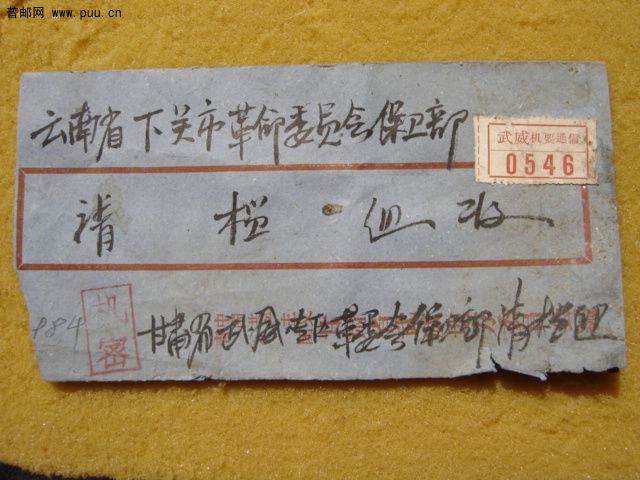 普邮网 www.puu.cn
云南省下关市革命委员会保卫部
武威机要通信
0546
清 档 组 收
机密
184
甘肃省武威地区革委会保卫部清档组